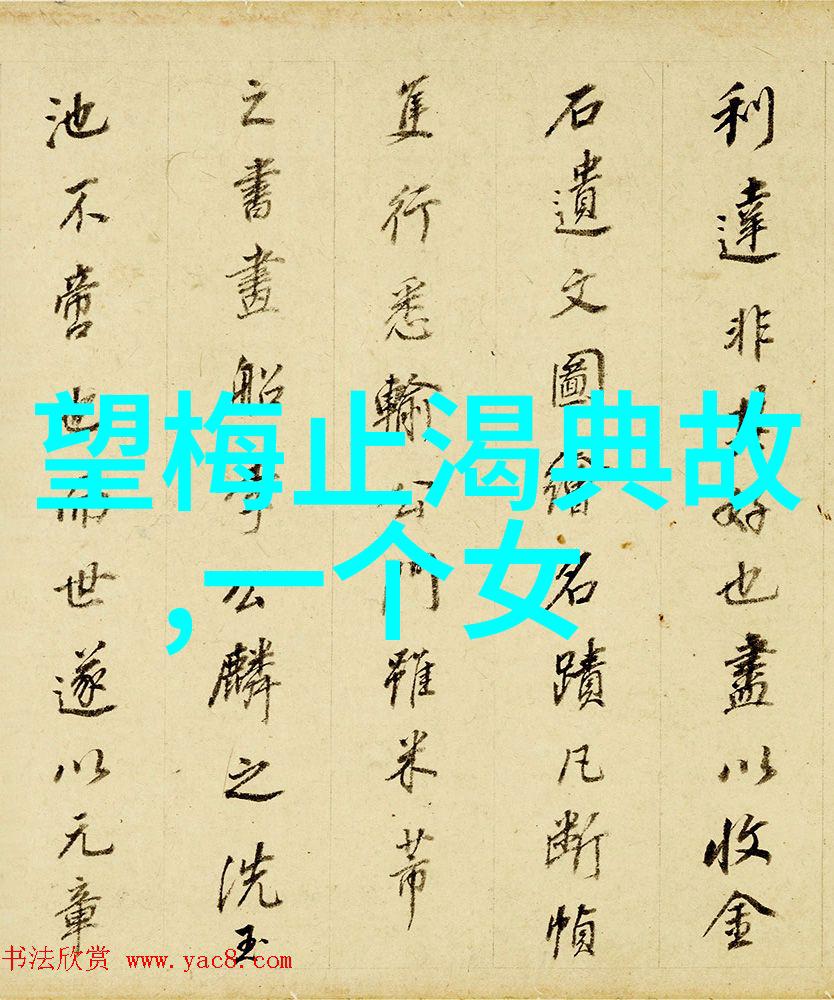 利達非其好也盡以收金
石遺文圖繪名蹟凡斷幀
隻行悉輸公門雖米芾
之書畫船李公麟之洗玉
池不啻也而世遂以元章
望梅止渴典故
,一个女
书法欣赏 www.yac8.com